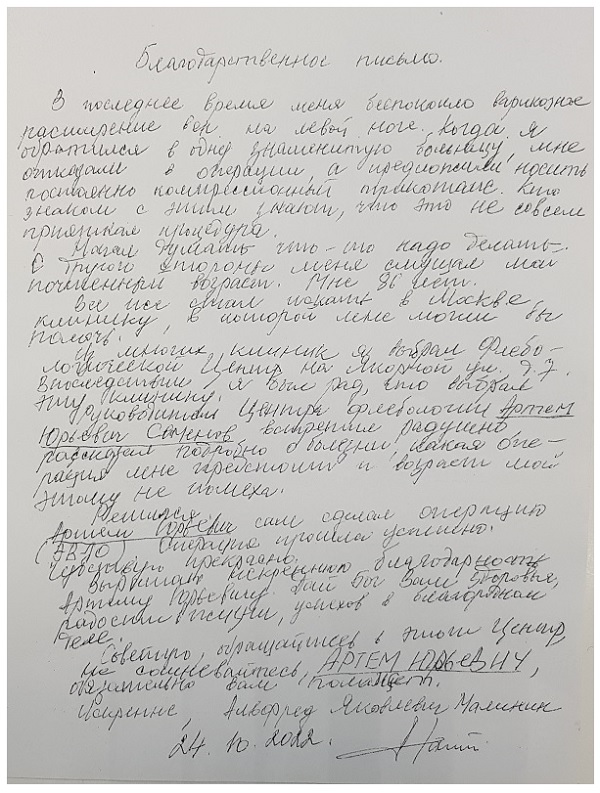 Благодарственное письмо.
В последнее время меня беспокоило варикозное
расширение вен на левой ноге. Когда я
обратился в одну знаменитую больницу, мне
отказали в операции, а предложили носить
постоянно компрессионный трикотаж. Кто
знаком с этим знают, что это не совсем
приятная процедура.
Начал думать что-то надо делать.
С другой стороны меня смущал мой
почтенный возраст. Мне 86 лет.
Все же стал искать в Москве,
клинику, в которой мне могли бы
помочь.
Из многих клиник я выбрал Флебо-
логический Центр на Якорной ул. д. 7.
Впоследствии я был рад, что выбрал
эту клинику.
Руководитель Центра флебологии Артем
Юрьевич Семенов встретил радушно,
рассказал подробно о болезни, какая опе-
рация мне предстоит и возраст мой
этому не помеха.
Решился.
Артем Юрьевич сам сделал операцию
(ЭВЛО) Операция прошла успешно.
Чувствую прекрасно.
Выражаю искреннюю благодарность
Артему Юрьевичу. Дай Бог Вам здоровья,
радости жизни, успехов в благородном
деле.
Советую, обращайтесь в этот Центр,
не сомневайтесь, АРТЕМ ЮРЬЕВИЧ,
обязательно вам поможет.
Искренне, Альфред Яковлевич Малинин
24. 10. 2022.